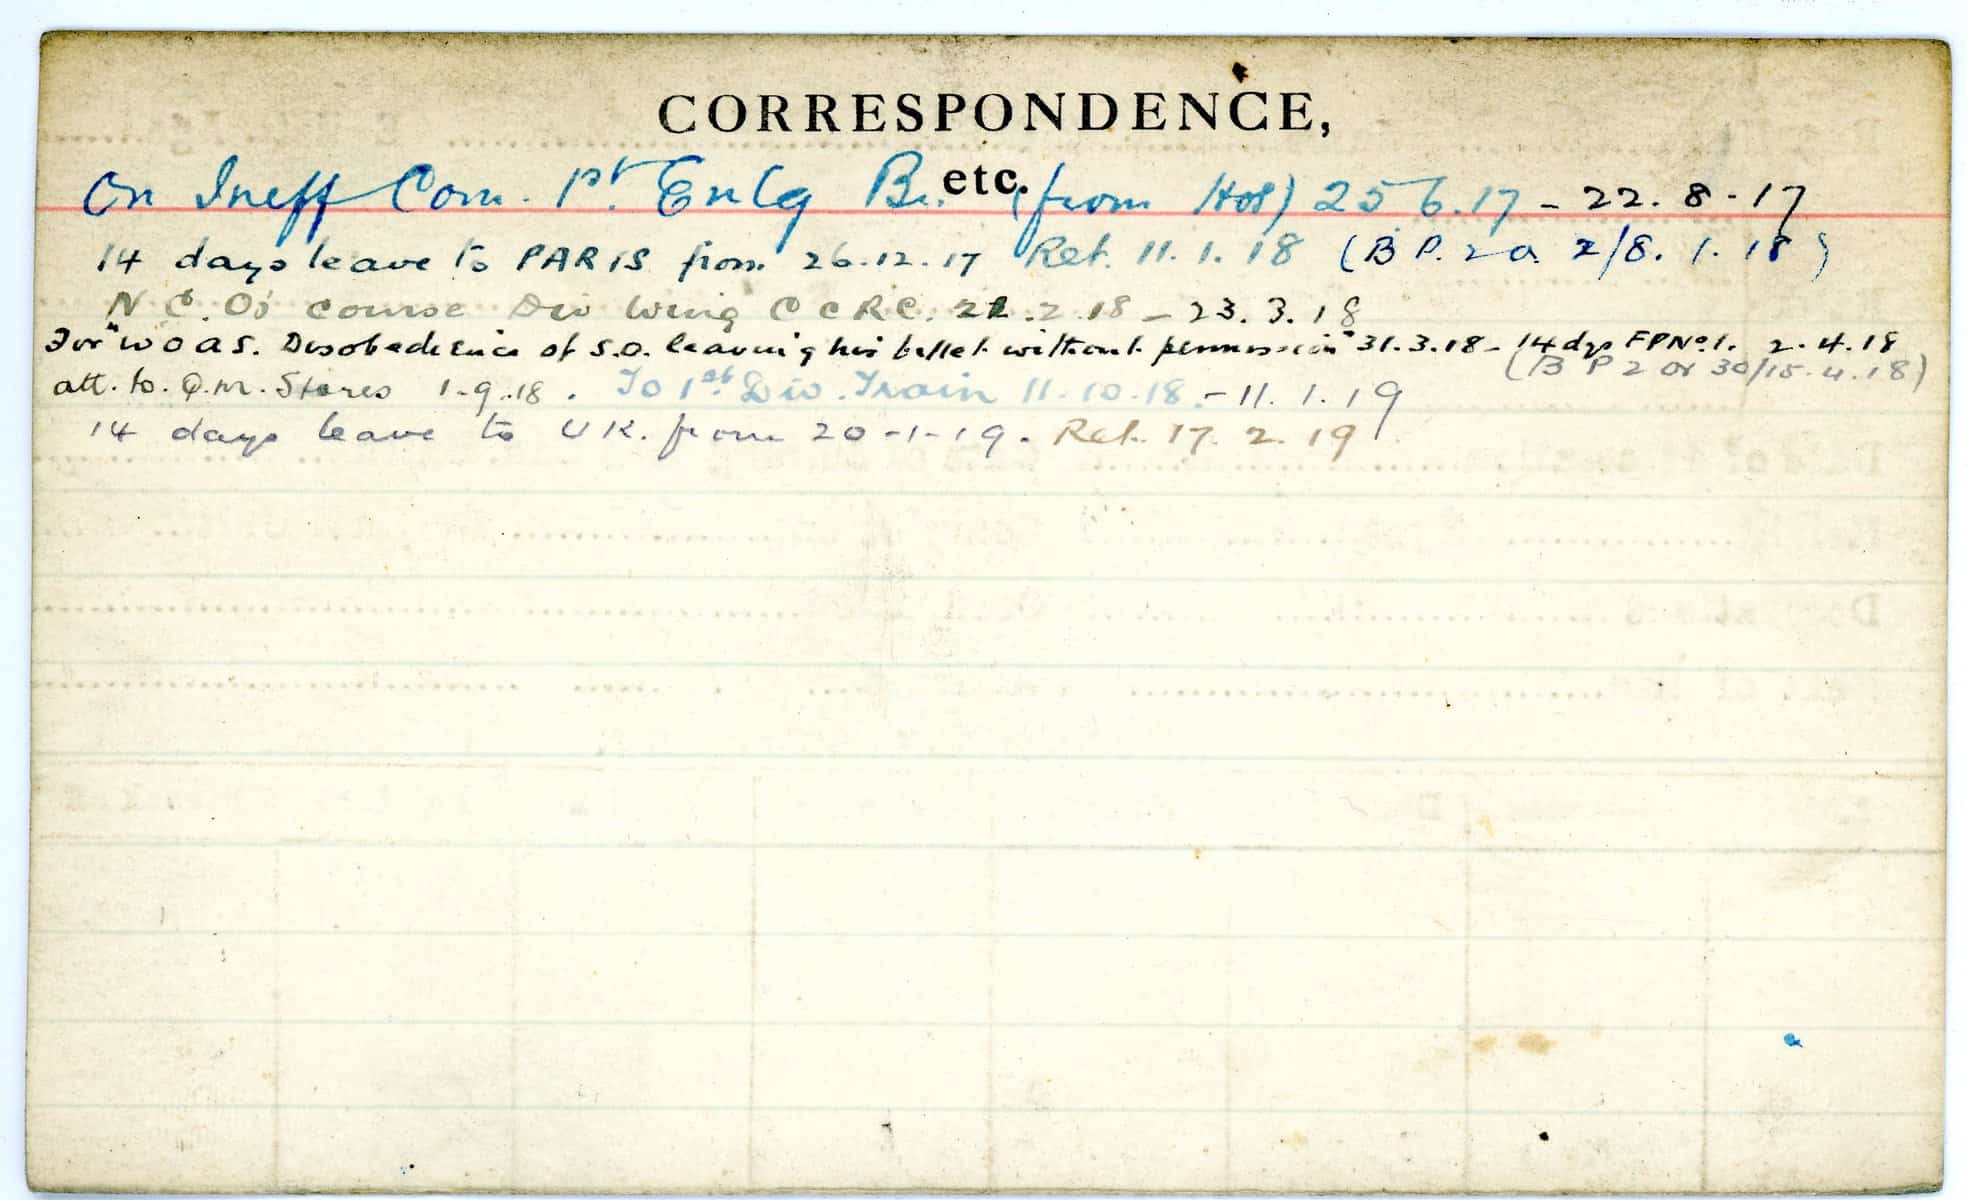 CORRESPONDENCE,
etc.
On Ineff Com. 1st. Enlg Br. (from Hos) 25 6.17 - 22. 8 - 17
14 days leave to PARIS from 26.12.17 Ret. 11. 1. 18 (B P. 2 a 2/8. 1. 18)
N C. Os course Div Wing C C R C. 22.2.18 - 23. 3. 18
For "W O A S. Disobedience of S.O. leaving his billet without permission" 31.3.18 - 14 dys FP No 1. 2.4.18
(B P 2 Or 30/15.4.18)
att. to. Q.M. Stores 1.9.18. To 1st Div. Train 11.10.18. - 11. 1. 19
14 days leave to UK. from 20-1-19. Ret. 17. 2. 19